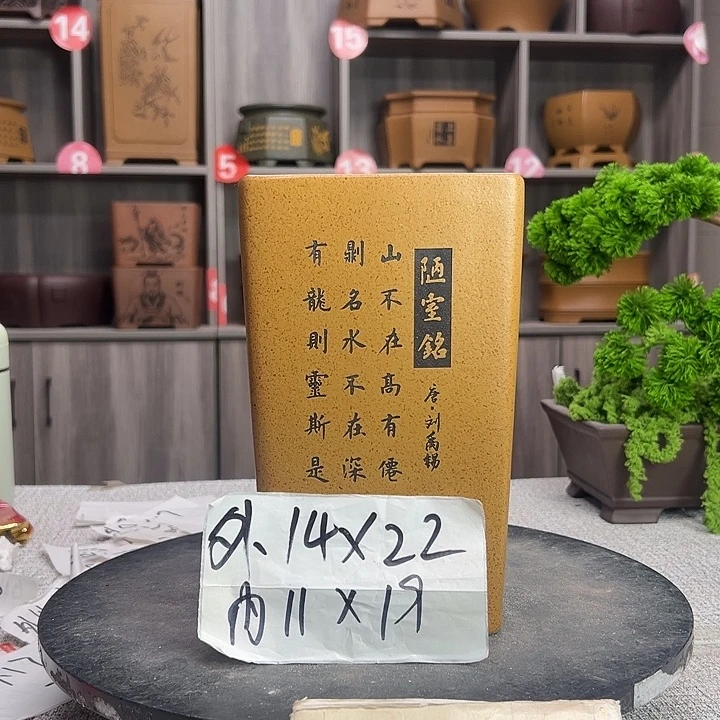 14
15
8
5
13
12
陋室銘
唐·刘禹锡
山不在高有僊
劓名水不在深
有龍則靈斯是
外、14×22
内11×19